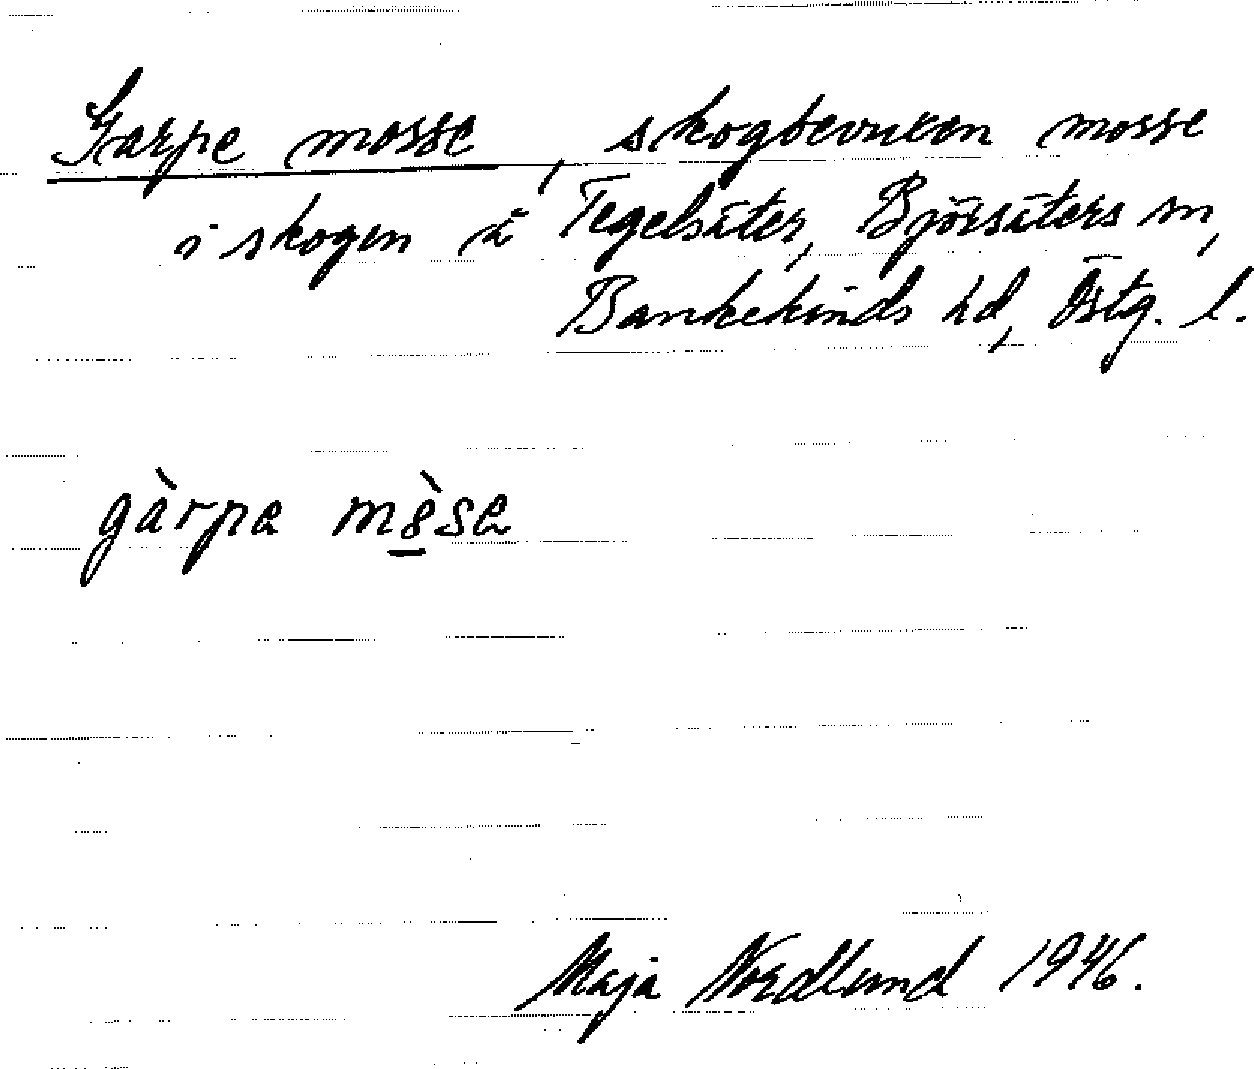 Garpe mosse, skogbevuxen mosse
i skogen å Tegelsäter, Björsäters sn,
Bankekinds hd, Östg. l.
gàrpa mò̱sa
Maja Nordlund 1946.